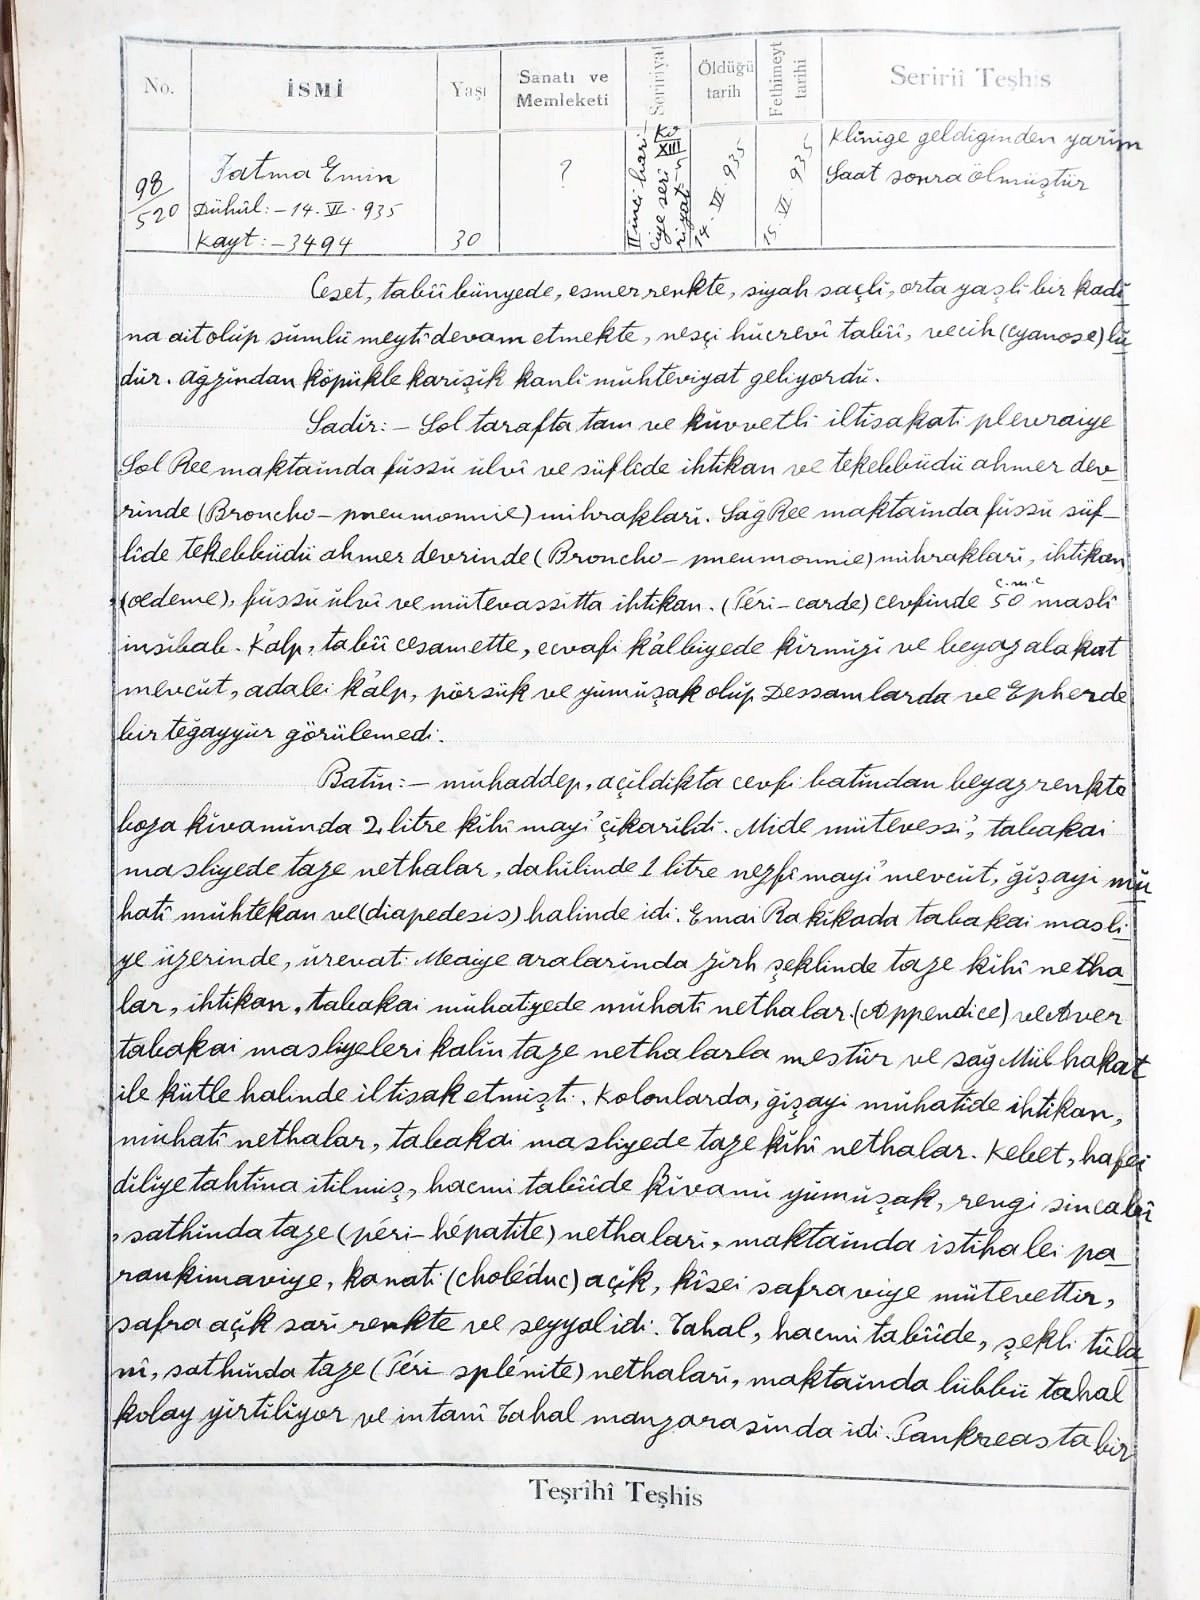 No.
İSMİ
Yaşı
Sanatı ve
Memleketi
Seririyat
Öldüğü
tarih
Fethimeyt
tarihi
Seririî Teşhis
98/520
Fatma Emin
Dühûl: - 14. VI. 935
Kayt: - 3494
30
?
Ko
XIII
IIinci hari-
ciye seri
riyatı
14. VI. 935
15. VI. 935
Kliniğe geldiğinden yarım
Saat sonra ölmüştür
Ceset, tabiî bünyede, esmer renkte, siyah saçlı, orta yaşlı bir kadı
na ait olup sumlü meyti devam etmekte, nesçi hücrevî tabiî, vecih (cyanose) lu
dur. Ağzından köpükle karışık kanlı muhteviyat geliyordu.
Sadır: - Sol tarafta tam ve kuvvetli iltisakatı plevraiye
Sol Ree maktaında fussu ulvî ve süflîde ihtikan ve tekebbüdü ahmer dev
rinde (Broncho - pneumonnie) mihrakları. Sağ Ree maktaında fussu süf-
lîde tekebbüdü ahmer devrinde (Broncho - pneumonnie) mihrakları, ihtikan
(oedeme), fussu ulvî ve mütevassıtta ihtikan. (Péri - carde) cevfinde 50 c.m.c maslî
insibab. Kalp, tabiî cesamette, ecvafı kalbiyede kırmızı ve beyaz alakat
mevcut, adalei kalp, pörsük ve yumuşak olup Dessamlarda ve Epherde
bir teğayyür görülemedi.
Batın: - muhaddep, açıldıkta cevfi batından beyaz renkte
boza kıvamında 2 litre kihî mayi çıkarıldı. Mide mütevessi, tabakai
masliyede taze nethalar, dahilinde 1 litre nezfî mayi mevcut, gişayi mu
hatî muhtekan ve (diapedesis) halinde idi. Emai Rakikada tabakai masli
ye üzerinde, urevatı Meaiye aralarında zırh şeklinde taze kihî netha
lar, ihtikan, tabakai muhatiyede muhatî nethalar. (Appendice) ve Aver
tabakai masliyeleri kalın taze nethalarla mestur ve sağ Mülhakat
ile kütle halinde iltisak etmişti. Kolonlarda, gişayi muhatîde ihtikan,
muhatî nethalar, tabakai masliyede taze kihî nethalar. Kebet, hafei
dıliye tahtına itilmiş, hacmi tabiîde kıvamı yumuşak, rengi sincabî
, sathında taze (péri - hépatite) nethaları, maktaında istihalei pa
rankimaviye, kanatı (choléduc) açık, kîsei safraviye mütevettir,
safra açık sarı renkte ve seyyal idi. Tahal, hacmi tabiîde, şekli tûla
nî, sathında taze (Péri splénite) nethaları, maktaında lübbü tahal
kolay yırtılıyor ve intanî Tahal manzarasında idi. Pankreasta bir
Teşrihî Teşhis